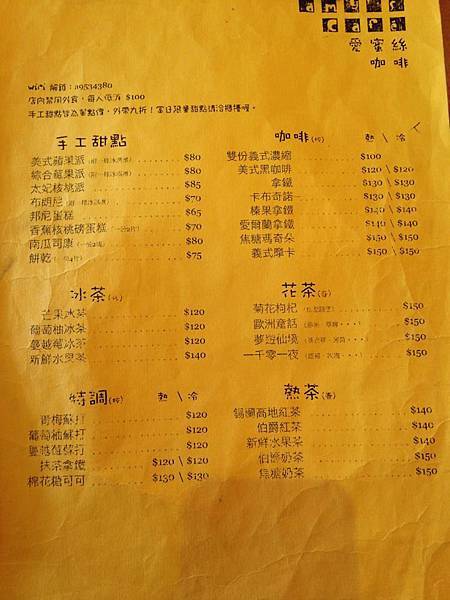 Cafe
愛蜜絲
咖啡
wifi 解鎖：a9534380
店內禁用外食，每人低消 $100
手工甜點皆為單點價，外帶九折！當日限量甜點請洽櫃檯喔。
手工甜點
美式蘋果派 $80
綜合莓果派 $80
太妃核桃派 $85
布朗尼 $70
邦尼蛋糕 $65
香蕉核桃磅蛋糕 $70
南瓜司康 $80
餅乾 $75
咖啡 熱 \ 冷
雙份義式濃縮 $100
美式黑咖啡 $120 \ $120
拿鐵 $130 \ $130
卡布奇諾 $130 \ $130
榛果拿鐵 $140 \ $140
愛爾蘭拿鐵 $140 \ $140
焦糖瑪奇朵 $150 \ $150
義式摩卡 $150 \ $150
冰茶
芒果冰茶 $120
葡萄柚冰茶 $120
蔓越莓冰茶 $120
新鮮水果茶 $140
花茶(壺)
菊花枸杞 $150
歐洲童話 $150
夢遊仙境 $150
一千零一夜 $150
特調 熱 \ 冷
青梅蘇打 $120
葡萄柚蘇打 $120
蔓越莓蘇打 $120
抹茶拿鐵 $120 \ $120
棉花糖可可 $130 \ $130
熱茶(壺)
錫蘭高地紅茶 $140
伯爵紅茶 $140
新鮮水果茶 $140
伯爵奶茶 $150
焦糖奶茶 $150